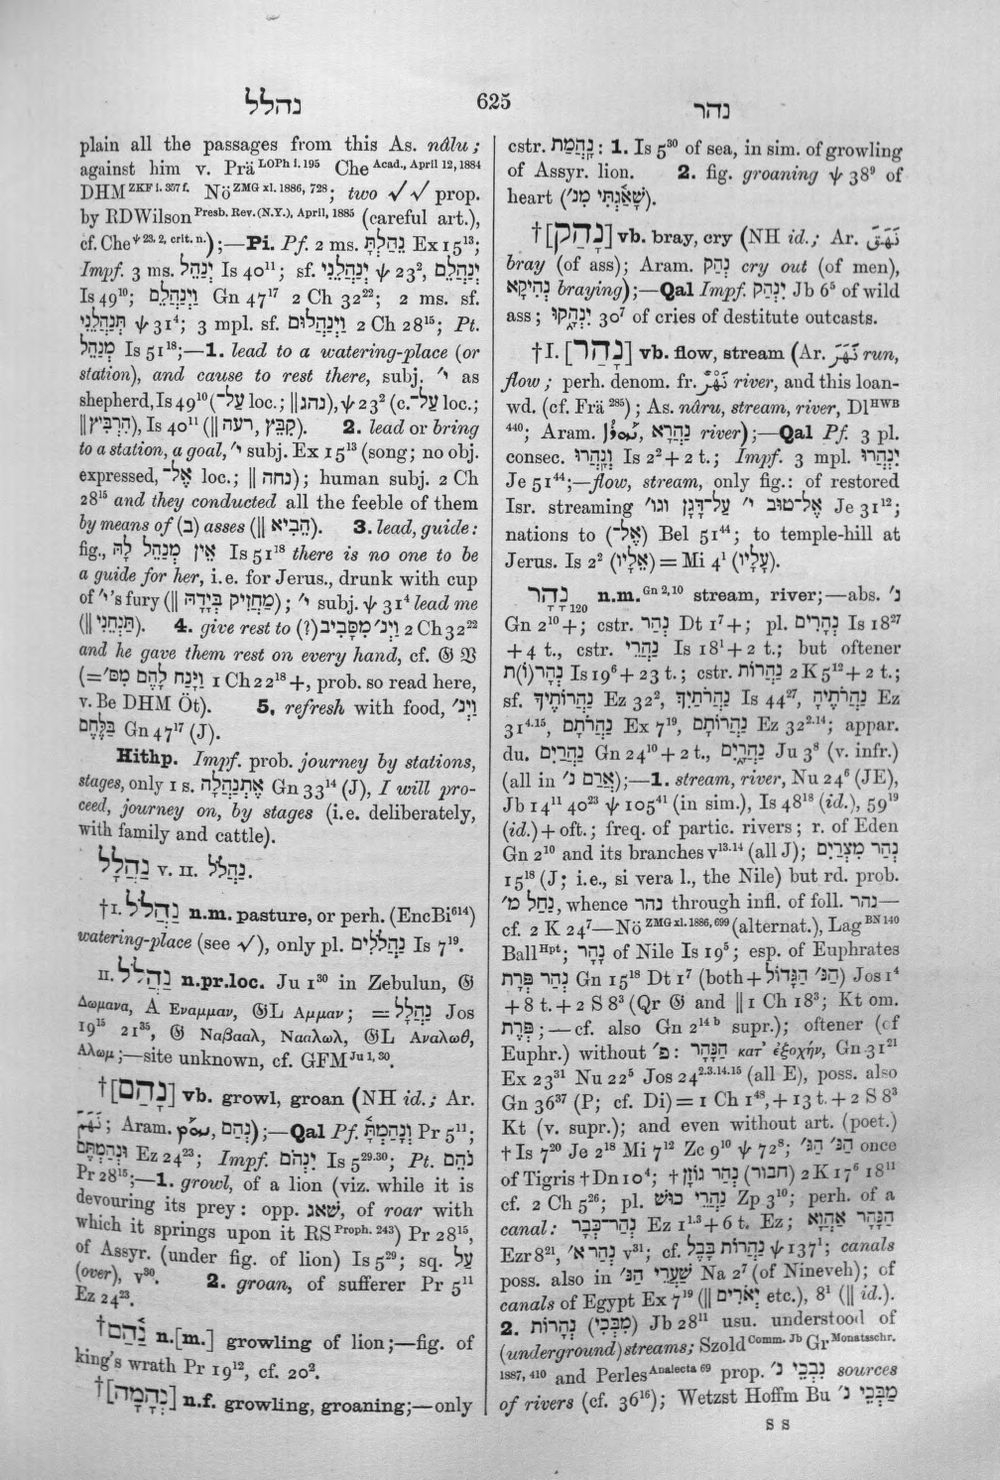 נהלל
625
נהר
plain all the passages from this As. nâlu;
against him v. Prä LOPh i. 195 Che Acad., April 12, 1884
DHM ZKF i. 357 f. Nö ZMG xl. 1886, 728; two √√ prop.
by RDWilson Presb. Rev. (N.Y.), April, 1885 (careful art.),
cf. Che ψ 23, 2, crit. n.);—Pi. Pf. 2 ms. נֵהַלְתָּ Ex 15¹³;
Impf. 3 ms. יְנַהֵל Is 40¹¹; sf. יְנַהֲלֵנִי ψ 23², יְנַהֲלֵם
Is 49¹⁰; וַיְנַהֲלֵם Gn 47¹⁷ 2 Ch 32²²; 2 ms. sf.
תְּנַהֲלֵנִי ψ 31⁴; 3 mpl. sf. וַיְנַהֲלוּם 2 Ch 28¹⁵; Pt.
מְנַהֵל Is 51¹⁸;—1. lead to a watering-place (or
station), and cause to rest there, subj. י״ as
shepherd, Is 49¹⁰ (עַל־ loc.; ‖ נהג), ψ 23² (c. עַל־ loc.;
‖ הִרְבִּיץ), Is 40¹¹ (‖ רעה, קִבֵּץ). 2. lead or bring
to a station, a goal, י״ subj. Ex 15¹³ (song; no obj.
expressed, אֶל־ loc.; ‖ נחה); human subj. 2 Ch
28¹⁵ and they conducted all the feeble of them
by means of (ב) asses (‖ הֵבִיא). 3. lead, guide:
fig., אֵין מְנַהֵל לָהּ Is 51¹⁸ there is no one to be
a guide for her, i.e. for Jerus., drunk with cup
of י״'s fury (‖ מַחֲזִיק בְּיָדָהּ); י״ subj. ψ 31⁴ lead me
(‖ תַּנְחֵנִי). 4. give rest to (?) וַיְנ׳ מִסָּבִיב 2 Ch 32²²
and he gave them rest on every hand, cf. 𝔊 𝔙
(=וַיָּנַח לָהֶם מִסּ׳ 1 Ch 22¹⁸+, prob. so read here,
v. Be DHM Öt). 5. refresh with food, וַיְנ׳
בַּלֶּחֶם Gn 47¹⁷ (J).
Hithp. Impf. prob. journey by stations,
stages, only 1 s. אֶתְנַהֲלָה Gn 33¹⁴ (J), I will pro-
ceed, journey on, by stages (i.e. deliberately,
with family and cattle).
נַהֲלָל v. II. נַהֲלֹל.
†I. נַהֲלֹל n.m. pasture, or perh. (EncBi⁶¹⁴)
watering-place (see √), only pl. נַהֲלֹלִים Is 7¹⁹.
II. נַהֲלֹל n.pr.loc. Ju 1³⁰ in Zebulun, 𝔊
Δωμανα, A Εναμμαν, 𝔊L Αμμαν; = נַהֲלָל Jos
19¹⁵ 21³⁵, 𝔊 Ναβααλ, Νααλωλ, 𝔊L Αναλωθ,
Αλωμ;—site unknown, cf. GFM Ju 1, 30.
†[נָהַם] vb. growl, groan (NH id.; Ar.
نَهَمَ; Aram. נְהַם);—Qal Pf. וְנָהַמְתָּ Pr 5¹¹;
וּנְהַמְתֶּם Ez 24²³; Impf. יִנְהֹם Is 5²⁹·³⁰; Pt. נֹהֵם
Pr 28¹⁵;—1. growl, of a lion (viz. while it is
devouring its prey: opp. שׁאג, of roar with
which it springs upon it RS Proph. 243) Pr 28¹⁵,
of Assyr. (under fig. of lion) Is 5²⁹; sq. עַל
(over), v³⁰. 2. groan, of sufferer Pr 5¹¹
Ez 24²³.
†נַ֫הַם n.[m.] growling of lion;—fig. of
king's wrath Pr 19¹², cf. 20².
†[נְהָמָה] n.f. growling, groaning;—only
cstr. נַהֲמַת: 1. Is 5³⁰ of sea, in sim. of growling
of Assyr. lion. 2. fig. groaning ψ 38⁹ of
heart (שָׁאַגְתִּי מִנּ׳).
†[נָהַק] vb. bray, cry (NH id.; Ar. نَهَقَ
bray (of ass); Aram. נְהַק cry out (of men),
נְהִיקָא braying);—Qal Impf. יִנְהַק Jb 6⁵ of wild
ass; יִנְהָקוּ 30⁷ of cries of destitute outcasts.
†I. [נָהַר] vb. flow, stream (Ar. نَهَرَ run,
flow; perh. denom. fr. نَهْرٌ river, and this loan-
wd. (cf. Frä ²⁸⁵); As. nâru, stream, river, Dl HWB
440; Aram. נַהֲרָא river);—Qal Pf. 3 pl.
consec. וְנָהֲרוּ Is 2²+2 t.; Impf. 3 mpl. יִנְהֲרוּ
Je 51⁴⁴;—flow, stream, only fig.: of restored
Isr. streaming אֶל־טוּב י״ עַל־דָּגָן וגו׳ Je 31¹²;
nations to (אֶל־) Bel 51⁴⁴; to temple-hill at
Jerus. Is 2² (אֵלָיו) = Mi 4¹ (עָלָיו).
נָהָר 120 n.m. Gn 2, 10 stream, river;—abs. נ׳
Gn 2¹⁰+; cstr. נְהַר Dt 1⁷+; pl. נְהָרִים Is 18²⁷
+4 t., cstr. נַהֲרֵי Is 18¹+2 t.; but oftener
נְהָר(וֹ)ת Is 19⁶+23 t.; cstr. נַהֲרוֹת 2 K 5¹²+2 t.;
sf. נַהֲרוֹתֶיךָ Ez 32², נַהֲרֹתַיִךְ Is 44²⁷, נַהֲרֹתֶיהָ Ez
31⁴·¹⁵, נַהֲרֹתָם Ex 7¹⁹, נַהֲרוֹתָם Ez 32²·¹⁴; appar.
du. נַהֲרַיִם Gn 24¹⁰+2 t., נַהֲרָיִם Ju 3⁸ (v. infr.)
(all in אֲרַם נ׳);—1. stream, river, Nu 24⁶ (JE),
Jb 14¹¹ 40²³ ψ 105⁴¹ (in sim.), Is 48¹⁸ (id.), 59¹⁹
(id.) + oft.; freq. of partic. rivers; r. of Eden
Gn 2¹⁰ and its branches v¹³·¹⁴ (all J); נְהַר מִצְרַיִם
15¹⁸ (J; i.e., si vera l., the Nile) but rd. prob.
נַחַל מ׳, whence נהר through infl. of foll. נהר—
cf. 2 K 24⁷—Nö ZMG xl. 1886, 699 (alternat.), Lag BN 140
Ball Hpt; נָהָר of Nile Is 19⁵; esp. of Euphrates
נְהַר פְּרָת Gn 15¹⁸ Dt 1⁷ (both + הַנּ׳ הַגָּדוֹל) Jos 1⁴
+8 t. + 2 S 8³ (Qr 𝔊 and ‖ 1 Ch 18³; Kt om.
פְּרָת; —cf. also Gn 2¹⁴ᵇ supr.); oftener (cf
Euphr.) without פ׳: הַנָּהָר κατ᾽ ἐξοχήν, Gn 31²¹
Ex 23³¹ Nu 22⁵ Jos 24²·³·¹⁴·¹⁵ (all E), poss. also
Gn 36³⁷ (P; cf. Di) = 1 Ch 1⁴⁸, + 13 t. + 2 S 8³
Kt (v. supr.); and even without art. (poet.)
† Is 7²⁰ Je 2¹⁸ Mi 7¹² Zc 9¹⁰ ψ 72⁸; הַנּ׳ הַגּ׳ once
of Tigris † Dn 10⁴; † נְהַר גּוֹזָן (חבור) 2 K 17⁶ 18¹¹
cf. 2 Ch 5²⁶; pl. נַהֲרֵי כוּשׁ Zp 3¹⁰; perh. of a
canal: נְהַר־כְּבָר Ez 1¹·³+6 t. Ez; הַנָּהָר אַהֲוָא
Ezr 8²¹, נְהַר א׳ v³¹; cf. נַהֲרוֹת בָּבֶל ψ 137¹; canals
poss. also in שַׁעֲרֵי הַנּ׳ Na 2⁷ (of Nineveh); of
canals of Egypt Ex 7¹⁹ (‖ יְאֹרִים etc.), 8¹ (‖ id.).
2. נְהָרוֹת (מִבְּכִי) Jb 28¹¹ usu. understood of
(underground) streams; Szold Comm. Jb Gr Monatsschr.
1887, 410 and Perles Analecta 69 prop. נִבְכֵי נ׳ sources
of rivers (cf. 36¹⁶); Wetzst Hoffm Bu מַבְּכֵי נ׳
S S